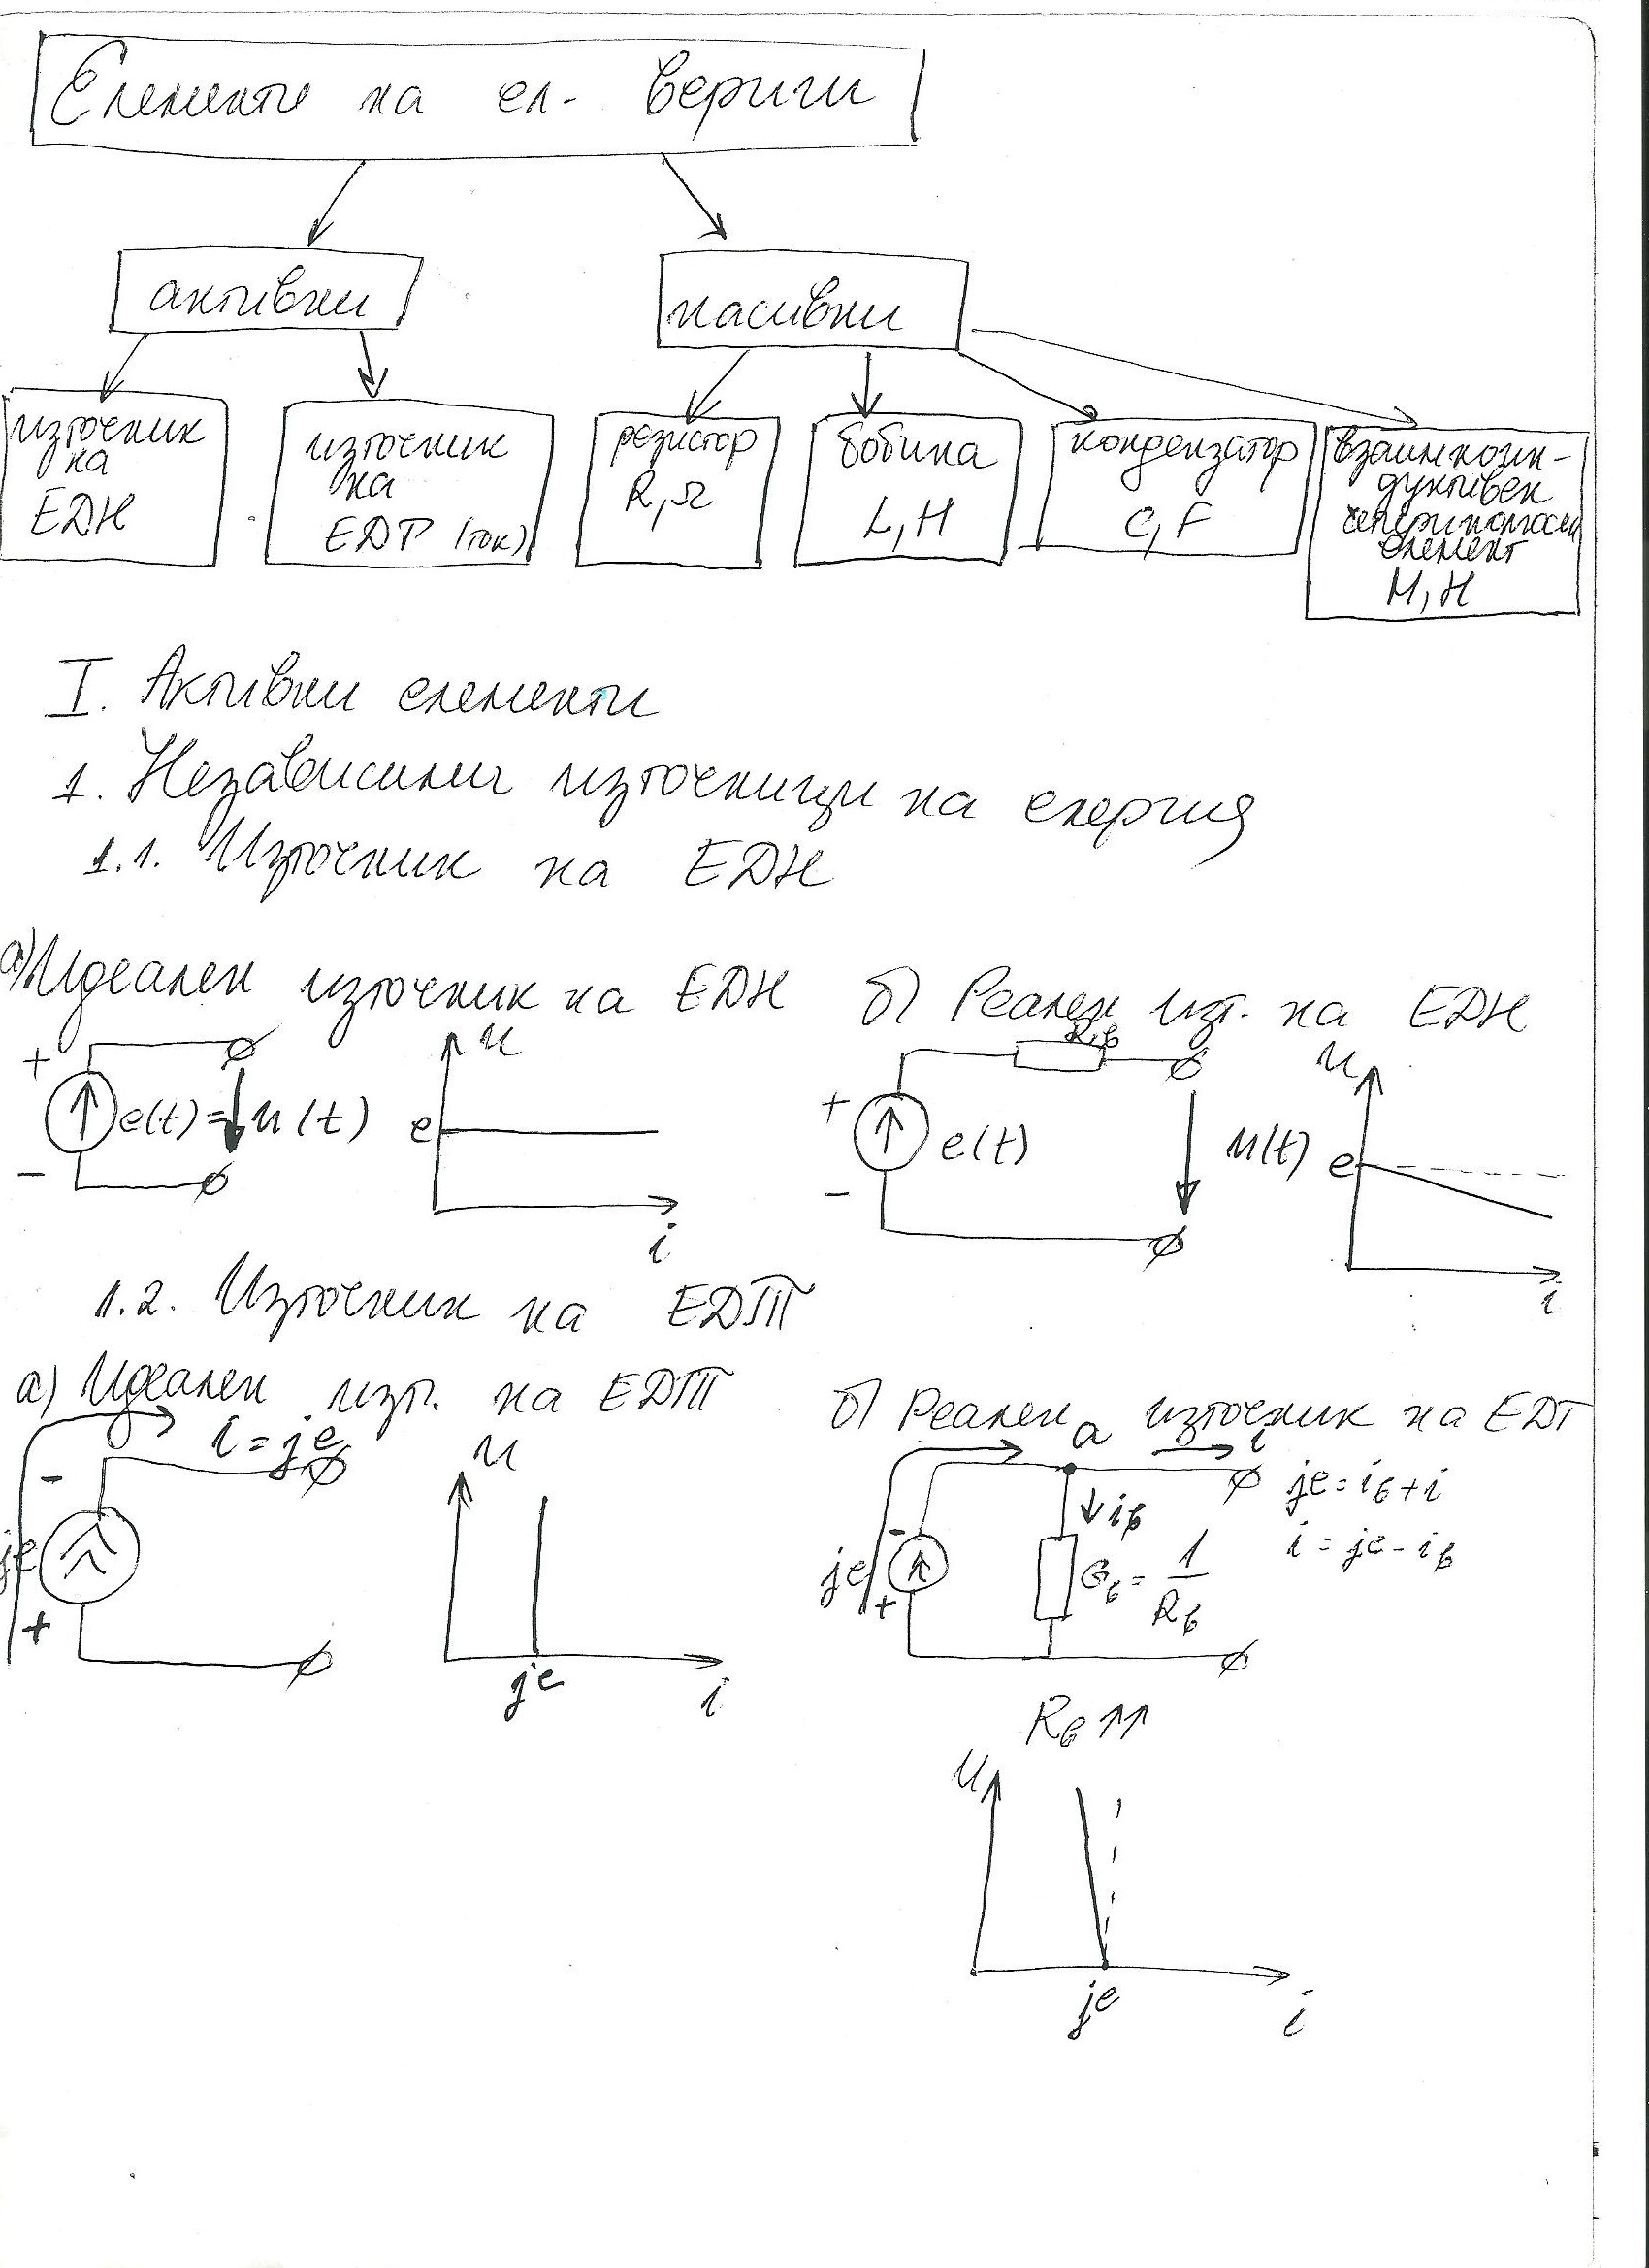 Елементи на ел. вериги
активни
пасивни
източник
на
ЕДН
източник
на
ЕДТ (ток)
резистор
R, Ω
бобина
L, H
кондензатор
C, F
взаимноин-
дуктивен
четириполюсен
елемент
M, H
I. Активни елементи
1. Независими източници на енергия
1.1. Източник на ЕДН
а) Идеален източник на ЕДН
+
e(t) = u(t)
-
u
e
i
б) Реален изт. на ЕДН
Rв
+
e(t)
-
u(t)
u
e
i
1.2. Източник на ЕДТ
а) Идеален изт. на ЕДТ
i = je
-
je
+
u
je
i
б) Реален източник на ЕДТ
a
i
je = iв + i
-
iв
i = je - iв
je
+
Gв = 1/Rв
Rв ↑↑
u
je
i